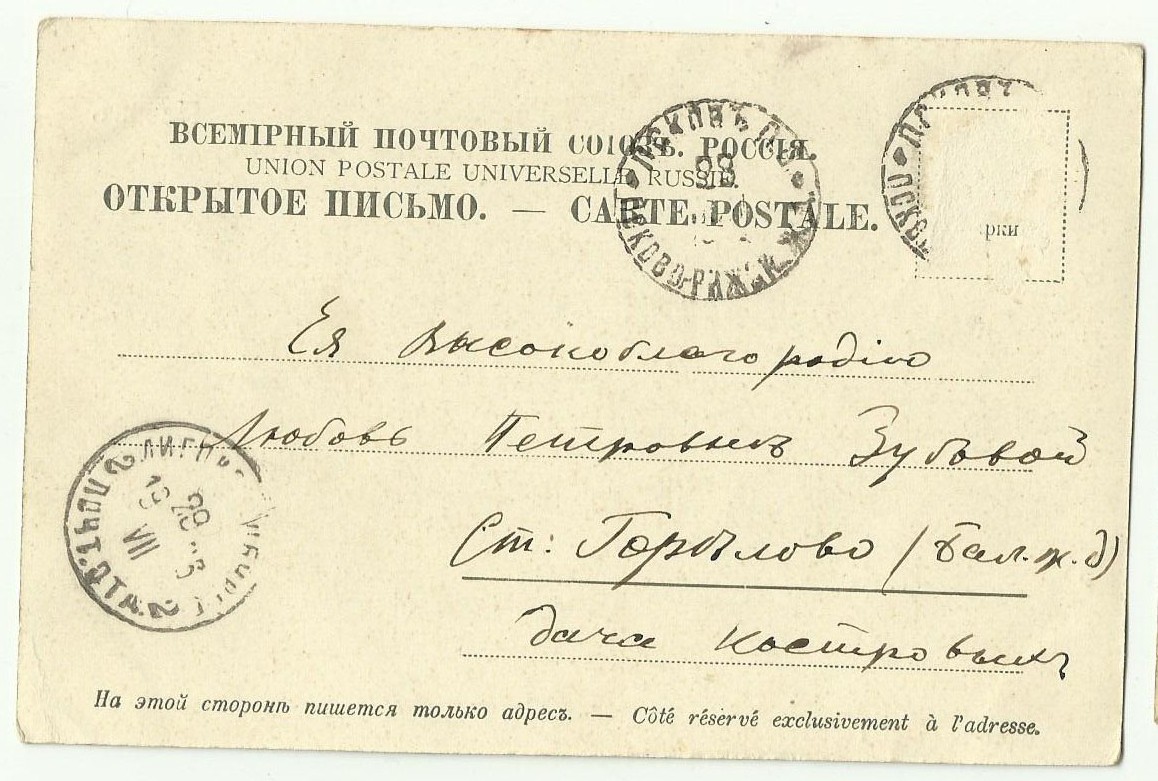 ВСЕМІРНЫЙ ПОЧТОВЫЙ СОЮЗЪ. РОССІЯ.
UNION POSTALE UNIVERSELLE. RUSSIE.
ОТКРЫТОЕ ПИСЬМО. — CARTE POSTALE.
ПСКОВЪ
28
рки
Ея Высокоблагородію
Любовь Петровнъ Зубовой
Ст: Горѣлово (Бал.ж.д)
дача Костровыхъ
28
19 03
VII
ПОЧТ. ОТД.
На этой сторонѣ пишется только адресъ. — Côté réservé exclusivement à l'adresse.